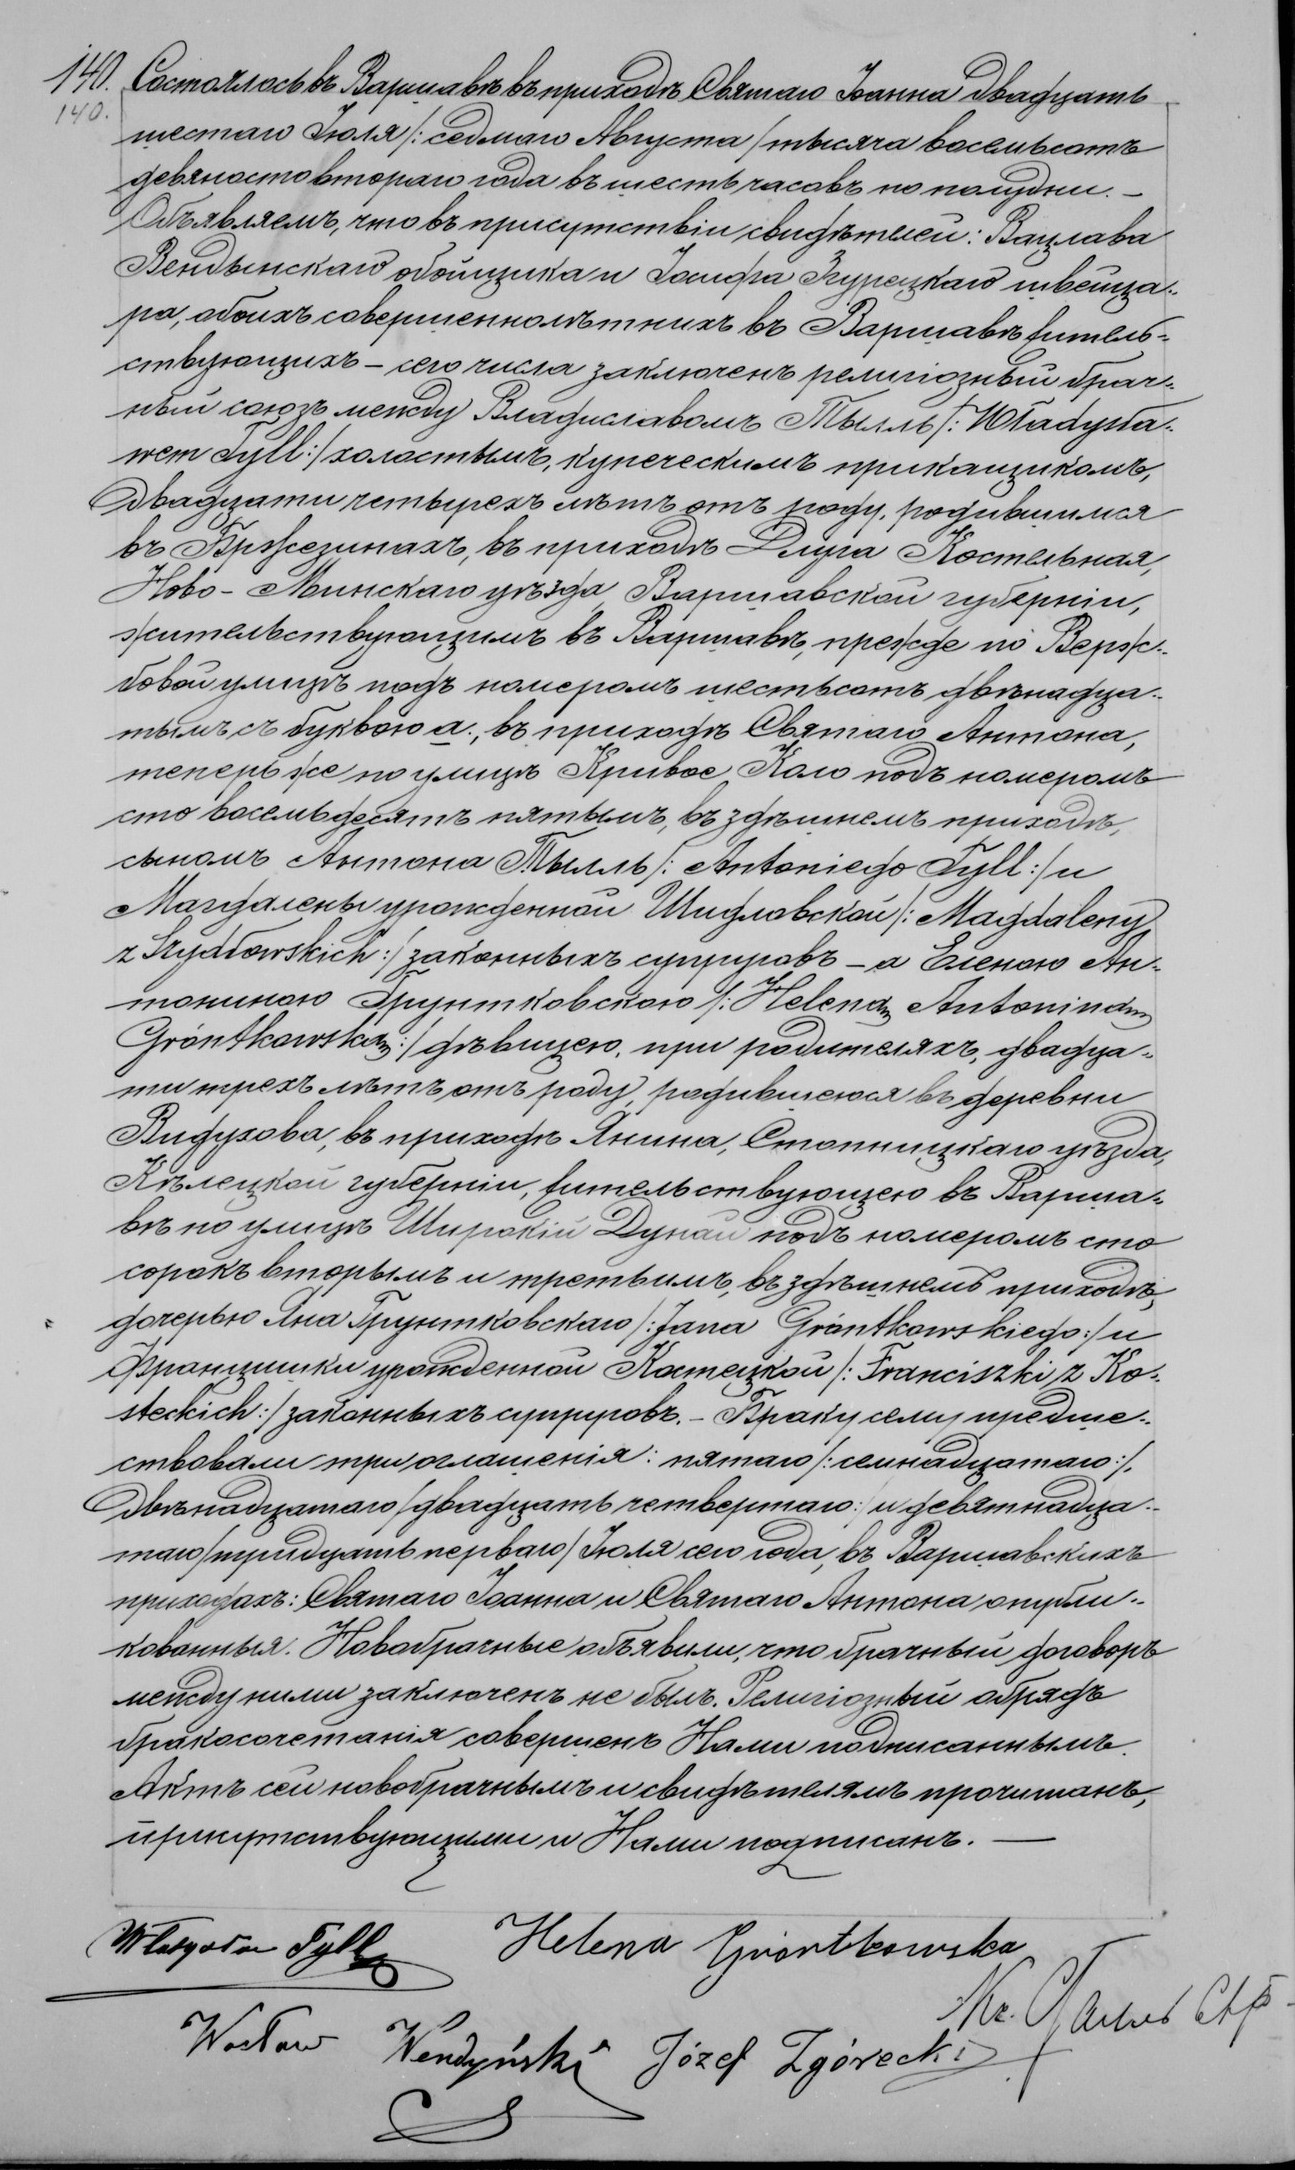 140. Состоялось въ Варшавѣ въ приходѣ Святаго Іоанна двадцать
140.
шестаго Іюля /: седмаго Августа / тысяча восемьсотъ
девяносто втораго года въ шесть часовъ по полудни. –
Объявляемъ, что въ присутствіи свидѣтелей: Вацлава
Вендынскаго обойщика и Іосифа Згурецкаго швейца-
ра, обоихъ совершеннолѣтнихъ въ Варшавѣ житель-
ствующихъ – сего числа заключенъ религіозный брач-
ный союзъ между Владиславомъ Тылль /: Władysła-
wem Tyll :/ холостымъ, купеческимъ прикащикомъ,
двадцати четырехъ лѣтъ отъ роду, родившимся
въ Бржезинахъ, въ приходѣ Длуга Костельная,
Ново-Минскаго уѣзда Варшавской губерніи,
жительствующимъ въ Варшавѣ, прежде по Верж-
бовой улицѣ подъ номеромъ шестьсотъ двѣнадца-
тымъ съ буквою а., въ приходѣ Святаго Антона,
теперь же по улицѣ Кривое Коло подъ номеромъ
сто восемьдесятъ пятымъ, въ здѣшнемъ приходѣ,
сыномъ Антона Тылль /: Antoniego Tyll :/ и
Магдалены урожденной Шидловской /: Magdaleny
z Szydłowskich :/ законныхъ супруговъ – а Еленою Ан-
тониною Грунтковскою /: Heleną Antoniną
Gróntkowską :/ дѣвицею, при родителяхъ, двадца-
ти трехъ лѣтъ отъ роду, родившеюся въ деревни
Видухова, въ приходѣ Янина, Стопницкаго уѣзда,
Кѣлецкой губерніи, жительствующею въ Варша-
вѣ по улицѣ Широкій Дунай подъ номеромъ сто
сорокъ вторымъ и третьимъ, въ здѣшнемъ приходѣ,
дочерью Яна Грунтковскаго /: Jana Gróntkowskiego :/ и
Францишки урожденной Костецкой /: Franciszki z Ko-
steckich :/ законныхъ супруговъ. – Браку сему предше-
ствовали три оглашенія: пятаго /: семнадцатаго :/,
двѣнадцатаго / двадцать четвертаго :/ и девятнадца-
таго / тридцать перваго / Іюля сего года, въ Варшавскихъ
приходахъ: Святаго Іоанна и Святаго Антона опубли-
кованныя. Новобрачные объявили, что брачный договоръ
между ними заключенъ не былъ. Религіозный обрядъ
бракосочетанія совершенъ Нами подписаннымъ.
Актъ сей новобрачнымъ и свидѣтелямъ прочитанъ,
присутствующими и Нами подписанъ. –
Władysław Tyll Helena Gróntkowska
Wacław Wendyński Józef Zgórecki